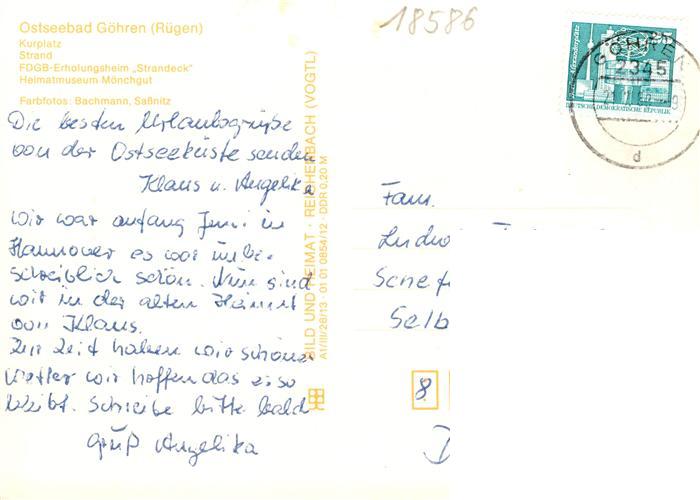 Ostseebad Göhren (Rügen)
Kurplatz
Strand
FDGB-Erholungsheim „Strandeck"
Heimatmuseum Mönchgut
Farbfotos: Bachmann, Saßnitz
18586
Die besten Urlaubsgrüße
von der Ostseeküste senden
Klaus u. Angelika
Wir war anfang Juni in
Hannover es war unbe-
schreiblich schön. Nun sind
wir in der alten Heimat
von Klaus.
Zur Zeit haben wir schönes
Wetter wir hoffen das es so
bleibt. Schreibe bitte bald
Gruß Angelika
BILD UND HEIMAT · REICHENBACH (VOGTL)
A1/III/26/13 · 01 01 0854/12 · DDR 0,20 M
25
DEUTSCHE DEMOKRATISCHE REPUBLIK
GÖHREN
2345
d
Fam.
Ludw
Selb
8
D